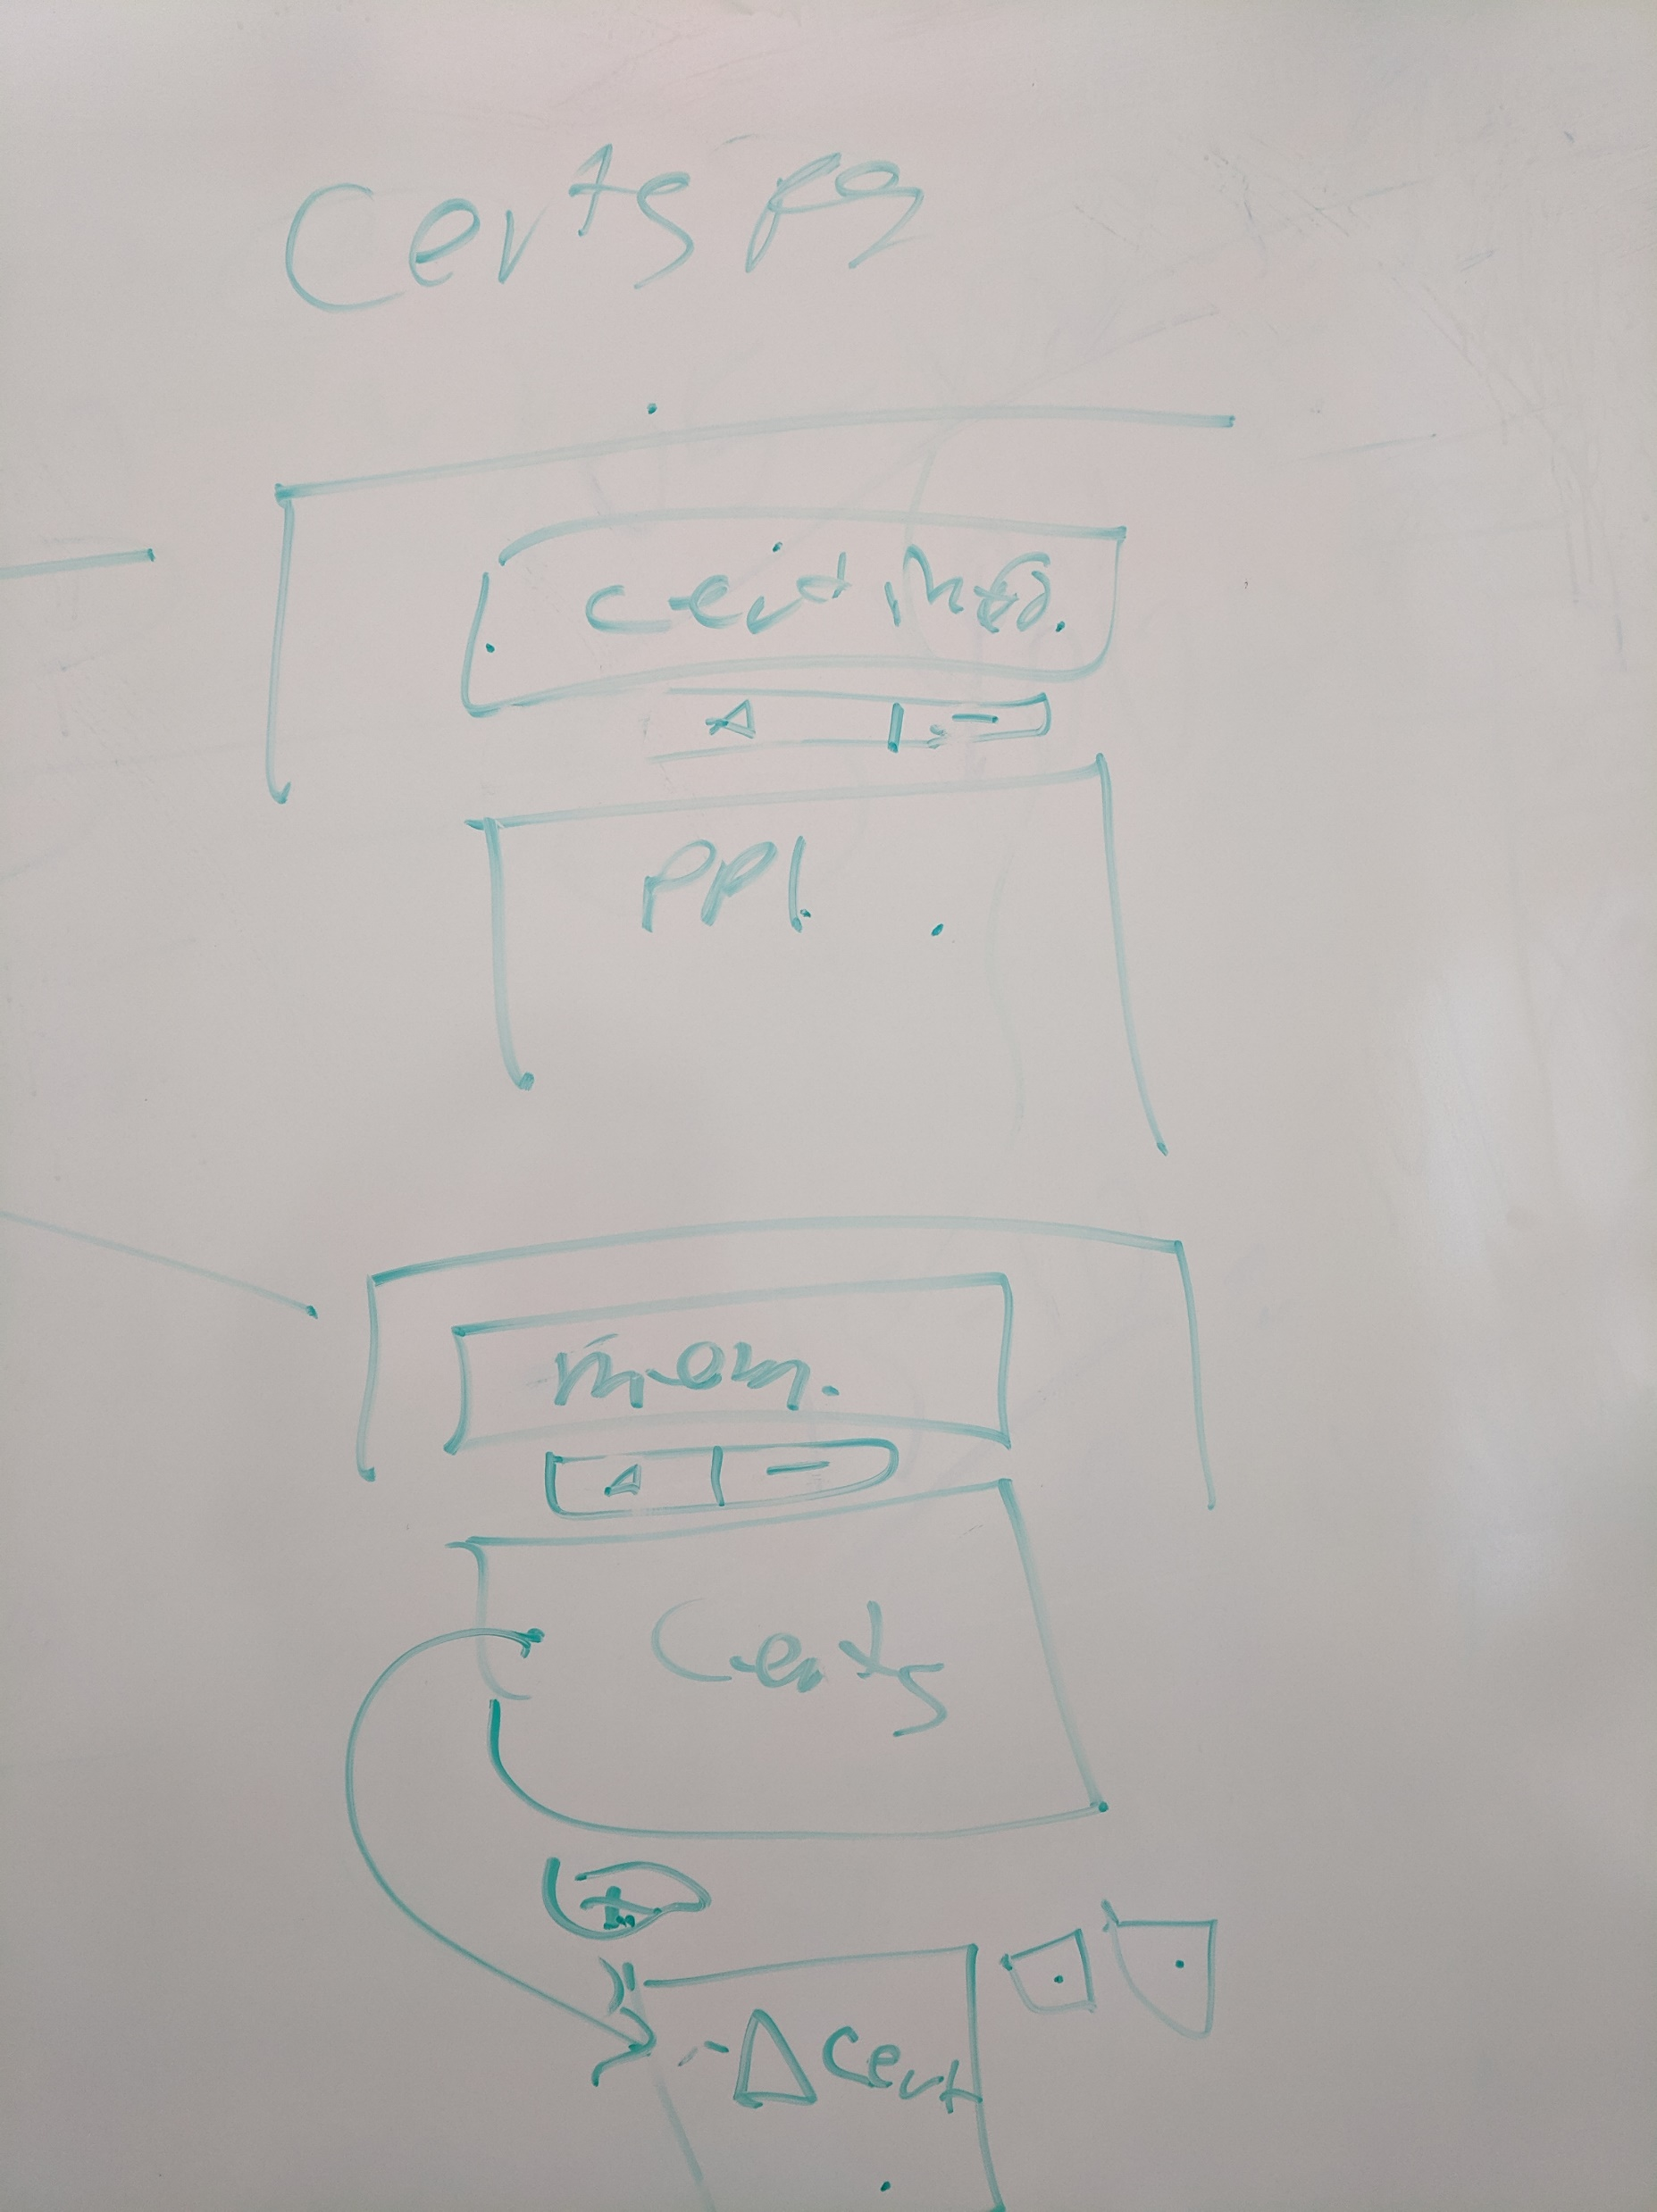 Certs pg
cert info.
Δ | -
PPl.
mem.
Δ | -
Certs
+
-Δ cert